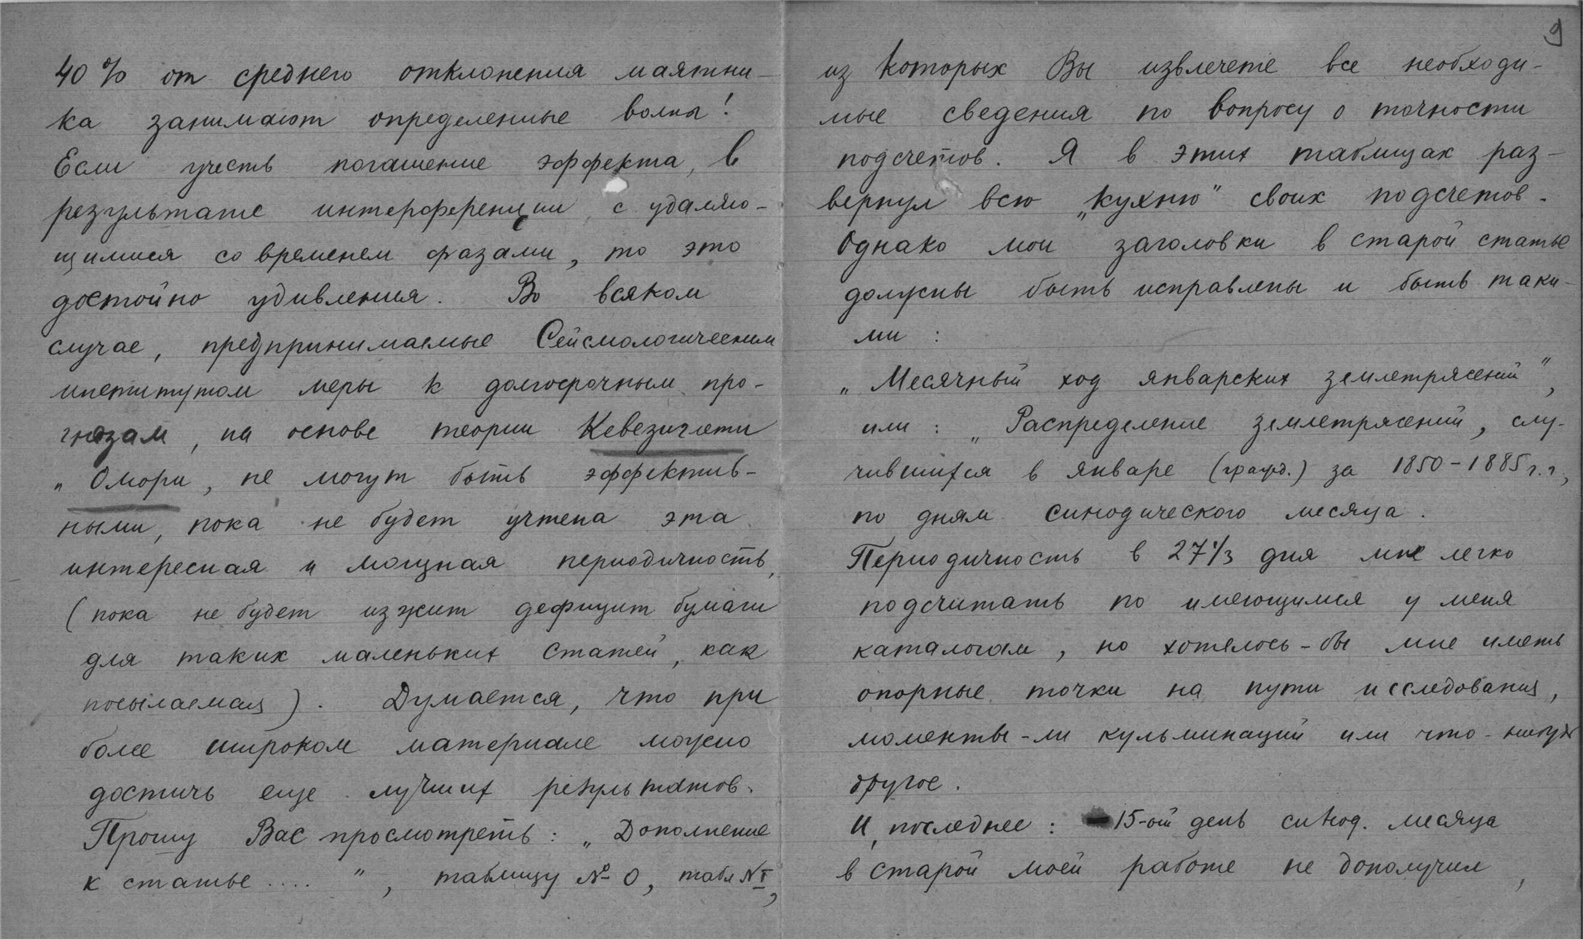 40% от среднего отклонения маятни-
ка занимают определенные волны!
Если учесть погашение эффекта, в
результате интерференции с удаляю-
щимися со временем фазами, то это
достойно удивления. Во всяком
случае, предпринимаемые Сейсмологическим
институтом меры к долгосрочным про-
гнозам, на основе теории Кевезигети
„Омори, не могут быть эффектив-
ными, пока не будет учтена эта
интересная и мощная периодичность,
(пока не будет изжит дефицит бумаги
для таких маленьких статей, как
посылаемая). Думается, что при
более широком материале можно
достичь еще лучших результатов.
Прошу Вас просмотреть: „Дополнение
к статье .... ", таблицу № 0, табл № I,
9
из которых Вы извлечете все необходи-
мые сведения по вопросу о точности
подсчетов. Я в этих таблицах раз-
вернул всю „кухню" своих подсчетов.
Однако мои заголовки в старой статье
должны быть исправлены и быть таки-
ми:
„Месячный ход январских землетрясений",
или: „Распределение землетрясений, слу-
чившихся в январе (гражд.) за 1850-1885 г.г.,
по дням синодического месяца.
Периодичность в 27 1/3 дня мне легко
подсчитать по имеющимся у меня
каталогам, но хотелось-бы мне иметь
опорные точки на пути исследования,
моменты-ли кульминаций или что-нибудь
другое.
И, последнее: 15-ый день синод. месяца
в старой моей работе не дополучил,